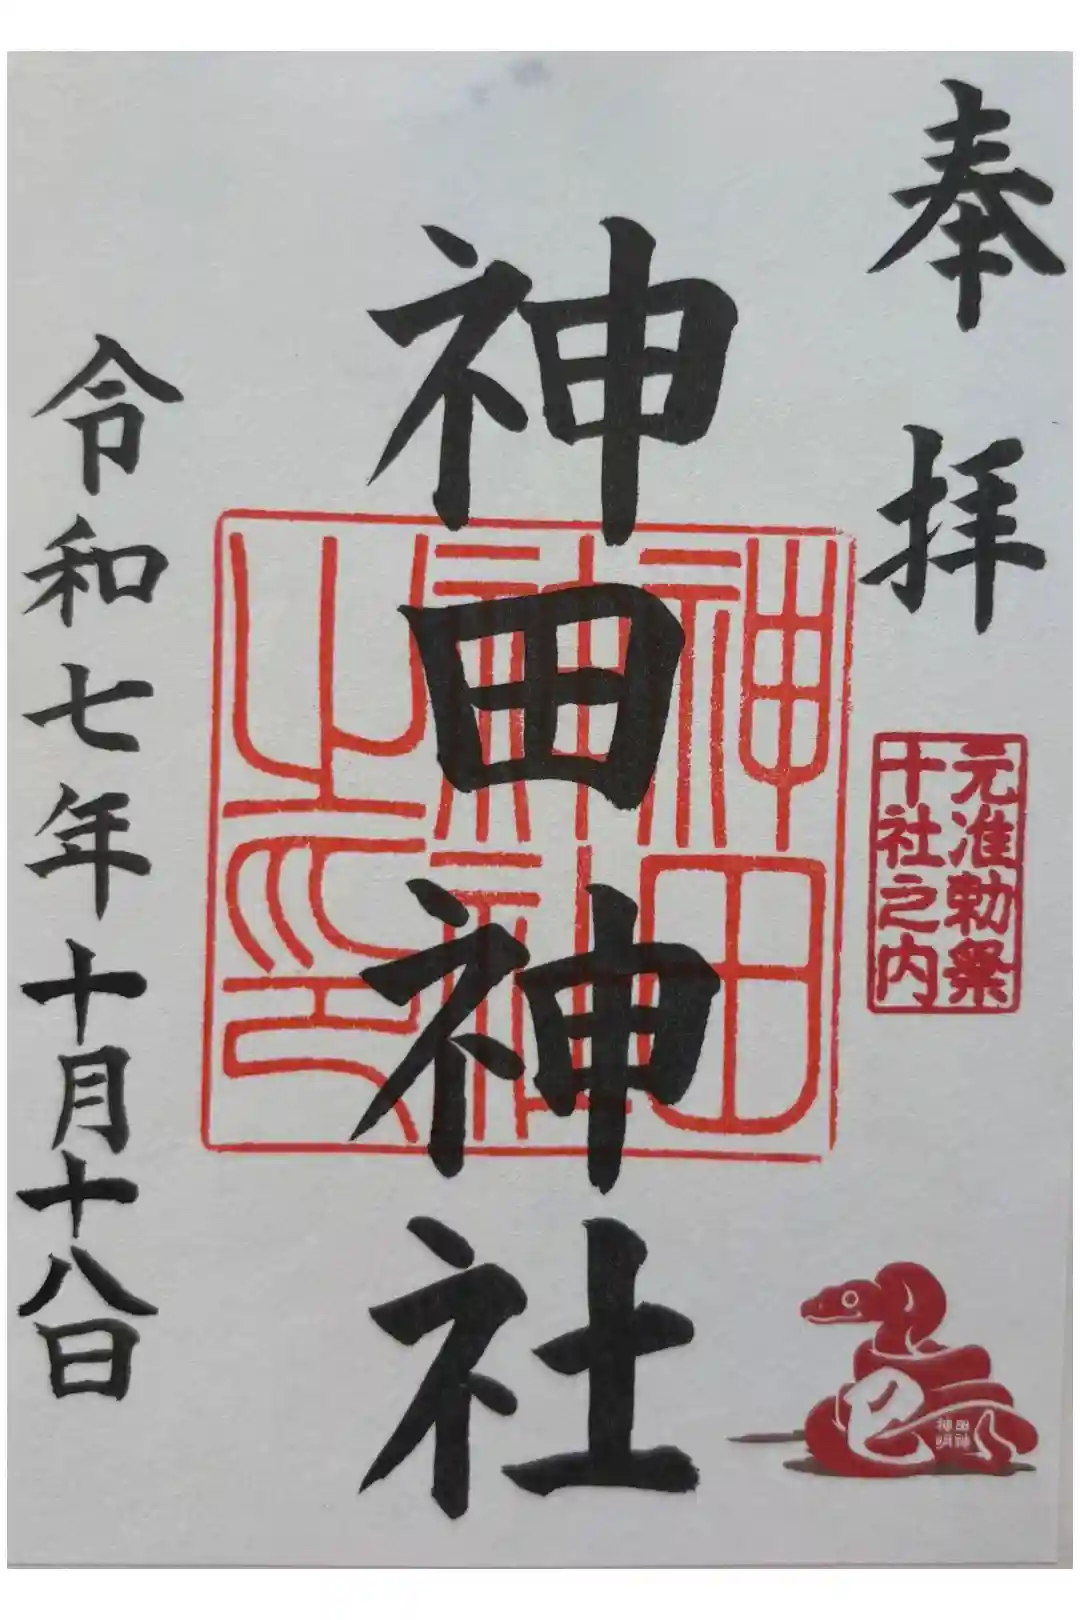 奉拝
元准勅祭
十社之内
神田神社
神田
神社
之印
巳
神田
明神
令和七年十月十八日